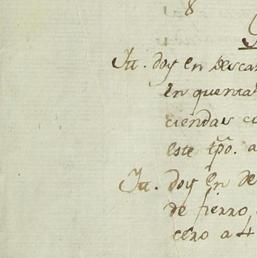 8
Yt. doy en descar
en quenta
ciendas c
este tpô. a
Yt. doy en de
de fierro,
cero a 4